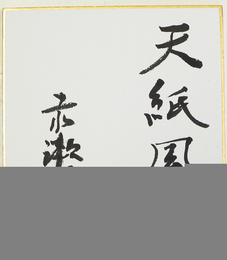 天紙風
赤漱